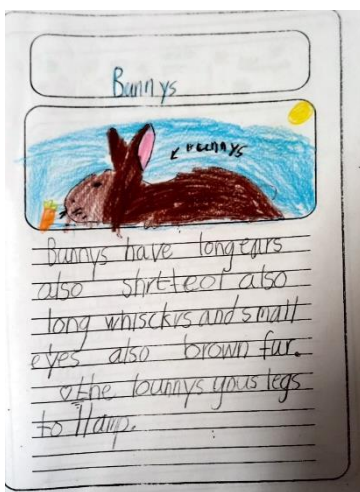 Bunnys
bunnys
Bunnys have long ears
also shrt teol also
long whisckrs and small
eyes also brown fur.
the bunnys yous legs
to